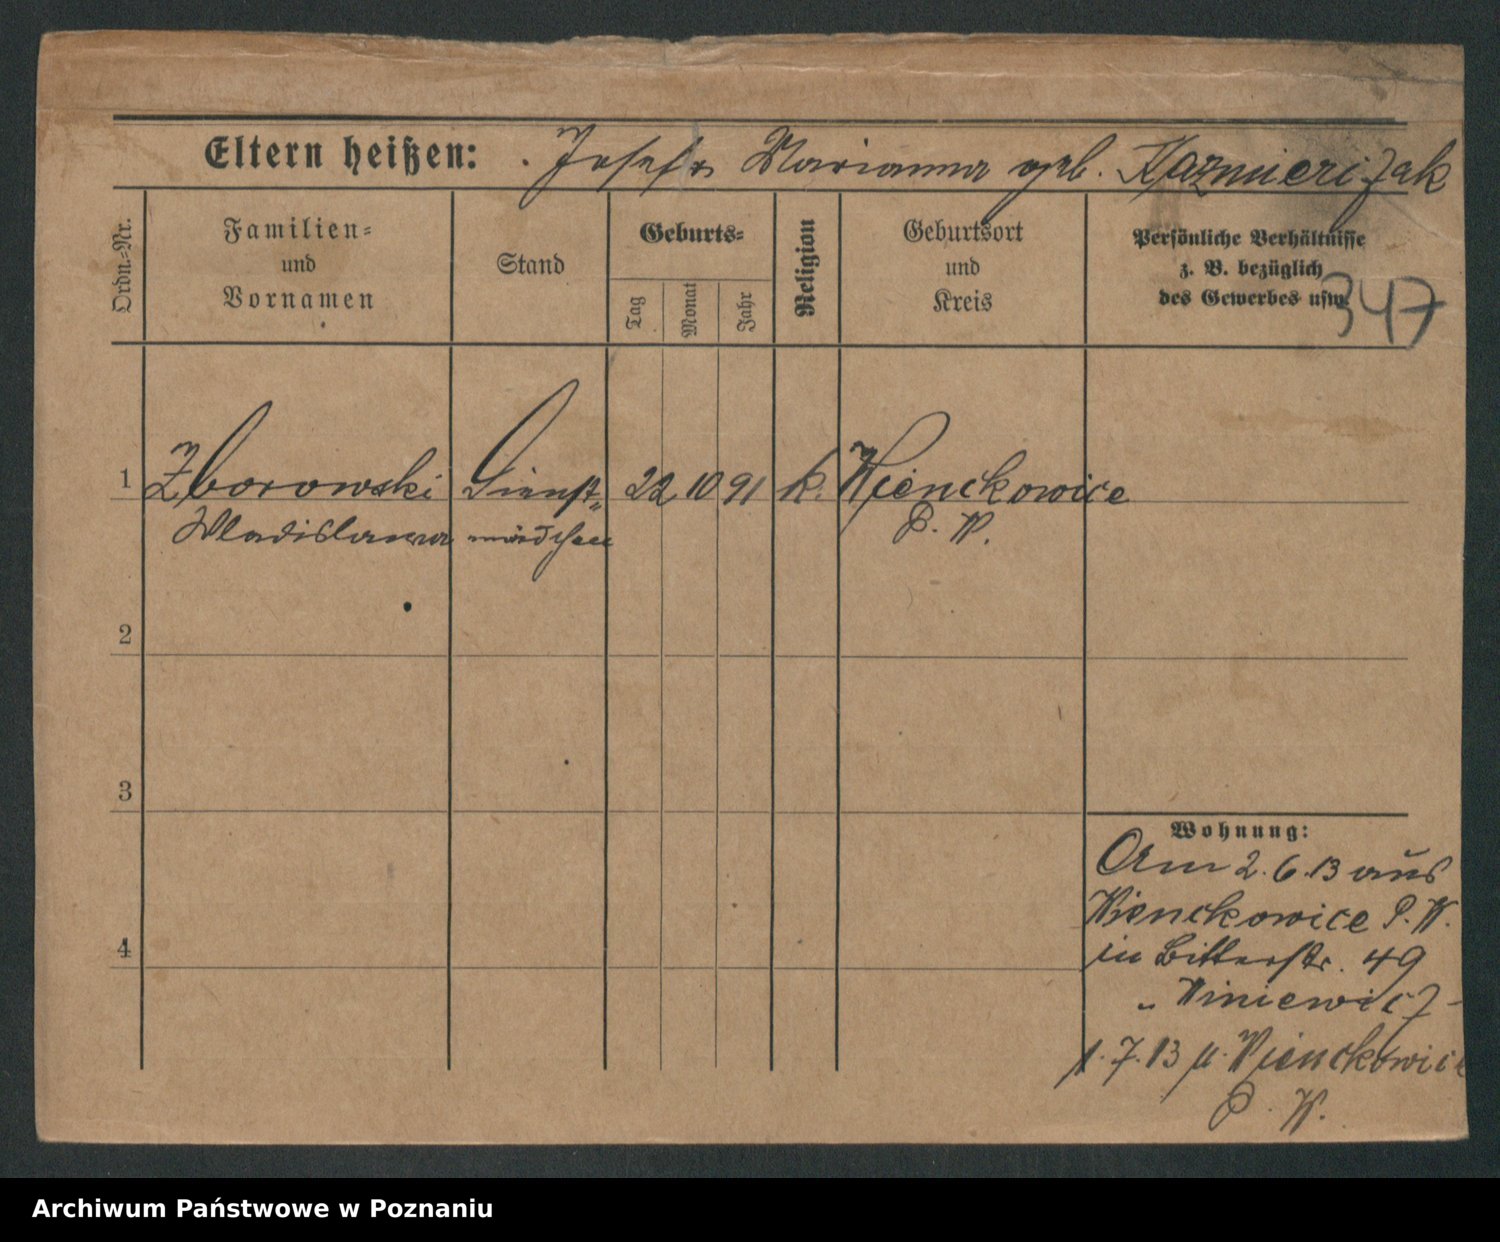 Eltern heißen: Josef u. Marianna geb. Kazmierizak
Ordn.-Nr.
Familien-
und
Vornamen
Stand
Geburts-
Tag
Monat
Jahr
Religion
Geburtsort
und
Kreis
Persönliche Verhältnisse
z. B. bezüglich
des Gewerbes usw.
347
1 Zborowski Dienst- 22 10 91 k. Wienckowice
Wladislawa mädchen P. W.
2
3
4
Wohnung:
Am 2.6.13 aus
Wienckowice P. W.
in Bitterstr. 49
" Winiewicz -
1.7.13 n. Wienckowice
P. W.
Archiwum Państwowe w Poznaniu